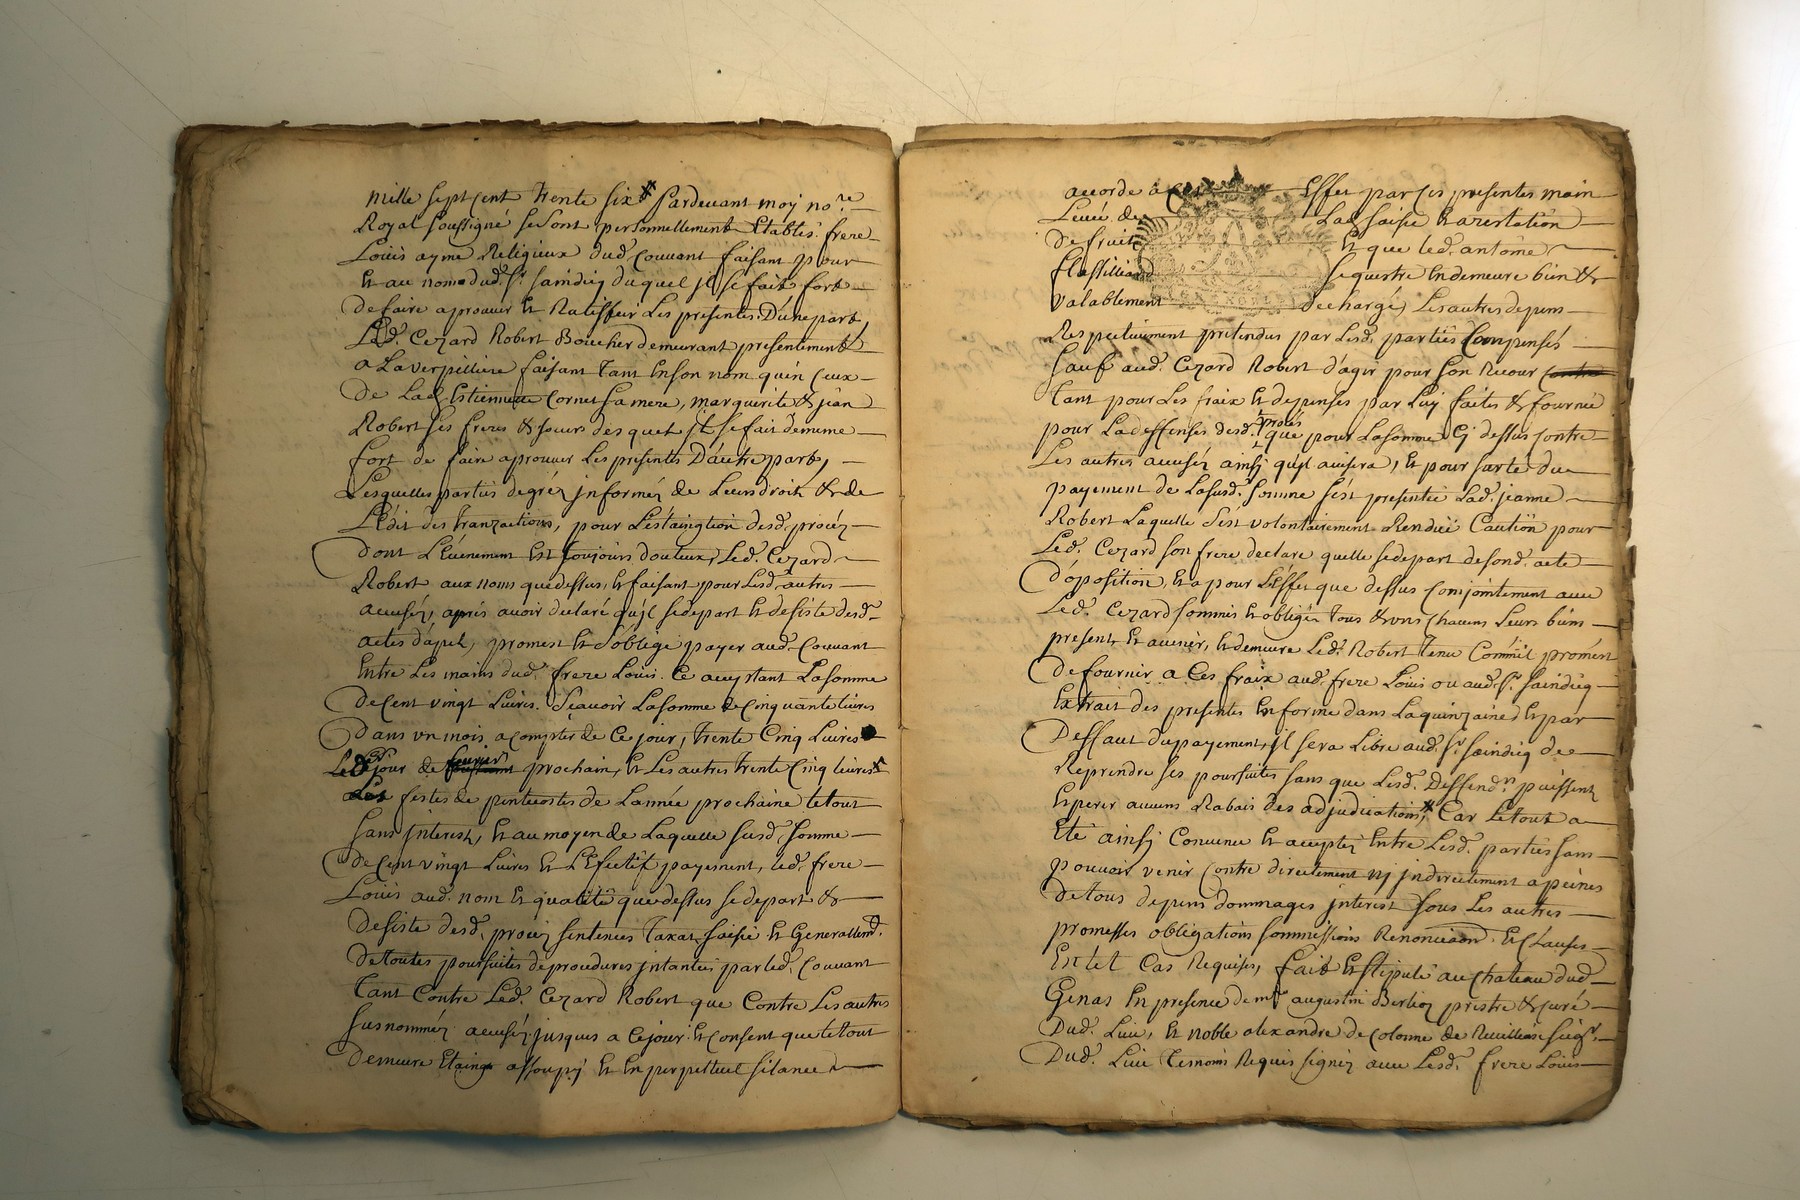 mille sept cent trente six pardevant moy no.re
Royal soussigné se sont personnellement Etablis frere
Louis ayme Religieux dud. Couvant faisant pour
Et au nom dud. Sr. saindiq duquel jl se fait fort
de faire aprouver Et Ratiffier Les presentes D'une part,
Led. Cezard Robert Boucher demeurant presentement
a La verpilliere faisant tant En son nom qu'en ceux
de Lad. Estiennette Cornet sa mere, marguerite & jean
Robert ses freres & soeurs desquels jl se fait de meme
fort de faire aprouver Les presentes D'autre part,
Lesquelles parties de gréz jnforméz de Leurs droits & de
L'Edit des tranzactions, pour L'estaingtion desd. procéz
dont L'Evenement Est toujours douteux, Led. Cezard
Robert aux noms que dessus, Et faisant pour Lesd. autres
accuséz, aprés avoir declaré qu'jl se depart Et desiste desd.
actes d'apel, promest Et s'oblige payer aud. Couvant
Entre Les mains dud. frere Louis Ce acceptant La somme
De Cent vingt Livres. Sçavoir La somme de Cinquante livres
Dans un mois a compter de Ce jour, trente Cinq Livres
Led. jour de fevrier prochain, Et Les autres trente Cinq livres
festes de pentecostes de L'année prochaine le tout
sans jnterest, Et au moyen de Laquelle susd. somme
de Cent vingt Livres Et L'Efectif payement, led. frere
Louis aud. nom Et qualité que dessus se depart &
desiste desd. procéz sentences taxat saisie Et Generallemt.
De toutes poursuites de procedures jntantéés par led. Couvant
tant Contre Led. Cezard Robert que Contre Les autres
susnomméz accuséz jusques a Ce jour Et consent que le tout
Demeure Etaing assoupj Et En perpettuel silance
accorde à Cet Effet par Ces presentes main
Levéé de Lad. saisie Et arestation
de fruit Et que led. antoine
flassilliard sequestre En demeure bien &
valablement dechargé, Les autres depens
Respectivement pretendus par Lesd. parties Compensés
sauf aud. Cezard Robert d'agir pour son Recour
tant pour Les fraix Et depenses par Luy faites & fournie
pour La deffenses desd. procés que pour La somme Cj dessus contre
Les autres accuséz ainsj qu'jl avisera, Et pour surte du
payement de La susd. somme s'est presentéé Lad. jeanne
Robert Laquelle s'est volontairement Rendüe Caution pour
Led. Cezard son frere declare quelle se depart de sond. acte
D'oposition, Et a pour L'Effet que dessus Conjointement avec
Led. Cezard sommis Et obligés tous & uns Chacuns Leurs biens
presents Et avenir, Et demeure Led. Robert tenu Comm'il promest
De fournir a Ces fraix aud. frere Louis ou aud. Sr. saindiq
Extrait des presentes En forme dans La quinzaine Et par
Deffaut du payement, jl sera Libre aud. Sr. saindiq de
Reprendre ses poursuites sans que Lesd. Deffend.rs puissent
Esperer aucuns Rabais des adjudications, Car Le tout a
Eté ainsj Convenu Et acceptéz Entre Lesd. parties sans
pouvoir venir Contre directement nj jndirectement a peines
De tous depens dommages jnterest sous Les autres
promesses obligations sommissions Renonciaon. Et Clauses
En tel Cas Requises, fait Et stipulé au Chateau dud.
Genas En presence de mre. augustin Berlioz prestre & curé
Dud. Lieu, Et noble alexandre de colonne de seigr.
Dud. Lieu temoins Requis signéz avec Lesd. frere Louis